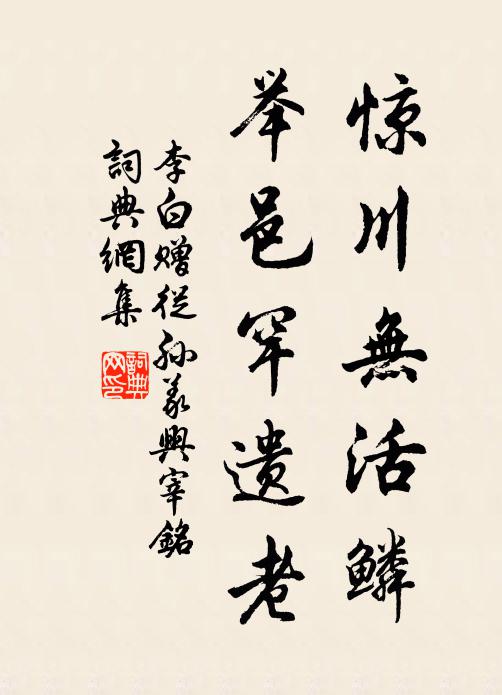 惊川無活鱗
举邑罕遗老
李白赠從孙義興宰銘
詞典網集
詞典網印